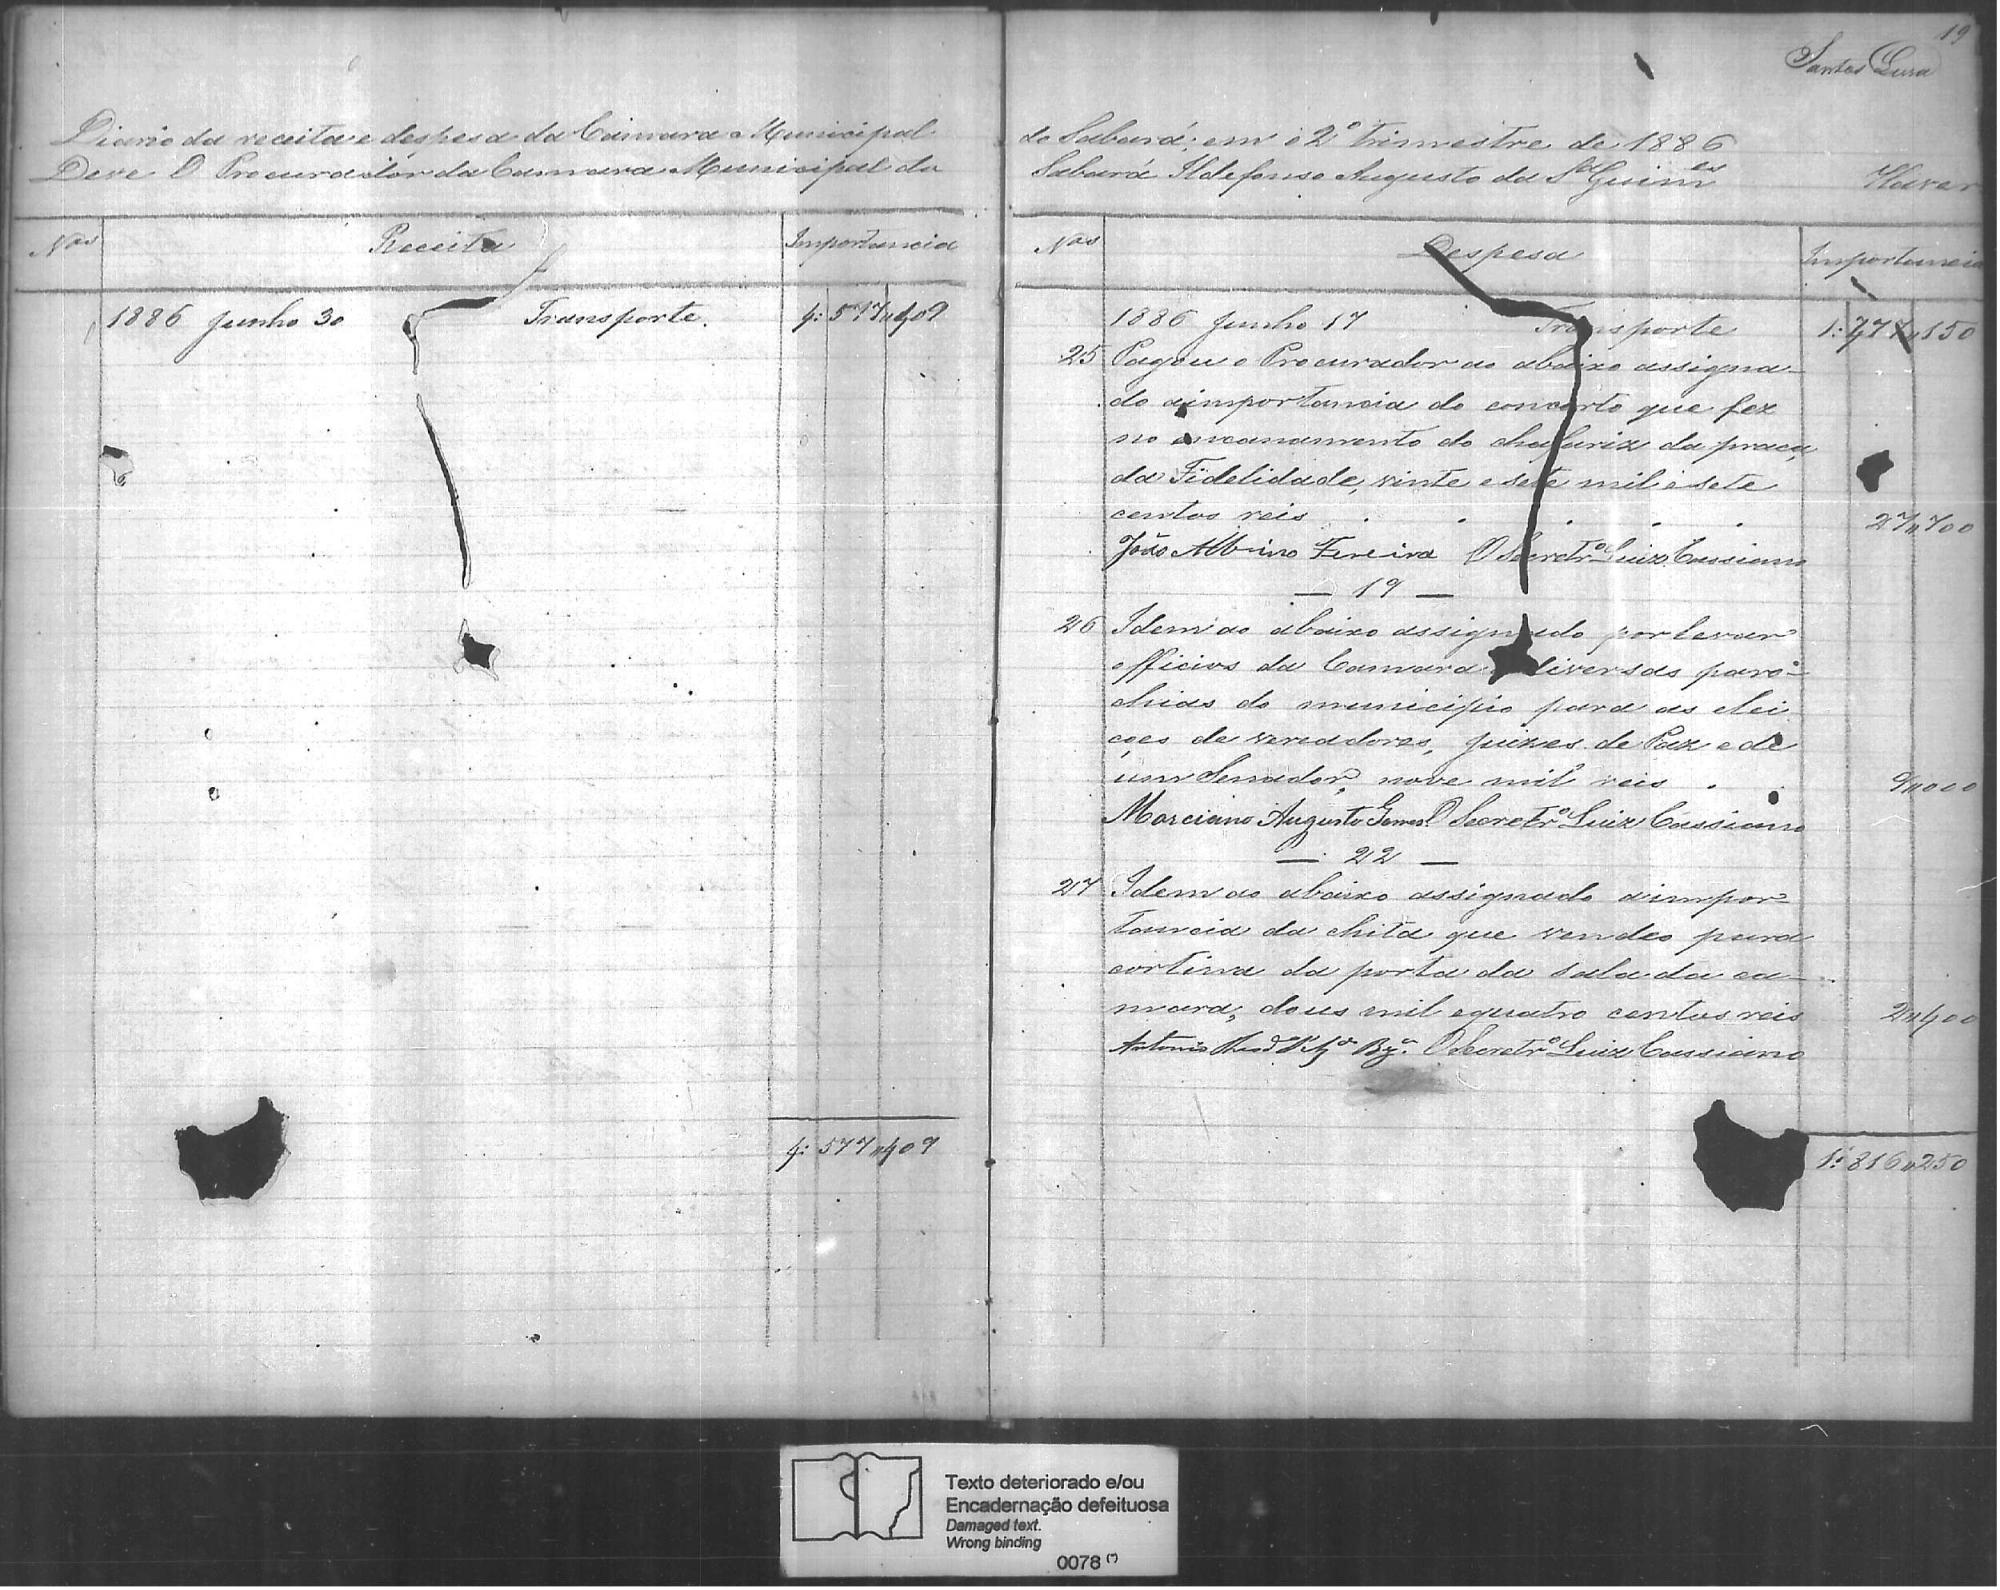 19
Santos Lima
Diario da receita e despesa da Camara Municipal
Deve O Procurador da Camara Municipal da
Nos Receita Importancia
1886 Junho 30 Transporte. 4:577,,409
4:577,,409
de Sabará: em o 2º trimestre de 1886
Sabará Ildefonso Augusto da Sª Guimes Haver
Nos Despesa Importancia
1886 Junho 17 Transporte 1:777,,150
25 Pagou o Procurador ao abaixo assigna-
do a importancia do concerto que fez
no encanamento do chafariz da praça
da Fidelidade, vinte e sete mil e sete
centos reis . . . . . 27,,700
João Albino Fereira O Secretrº Luiz Cassiano
— 19 —
26 Idem ao abaixo assignado por levar
officios da Camara diversas paro-
chias do municipio para as elei
ções de vereadores, juizes de Paz e de
um Senador, nove mil reis . . 9,,000
Marciano Augusto Gomes O Secretrº Luiz Cassiano
— 22 —
27 Idem ao abaixo assignado a impor-
tancia da chita que vendeo para
cortina da porta da sala da ca-
mara; dous mil e quatro centos reis 2,,400
Antonio O Secretrº Luiz Cassiano
1:816,,250
Texto deteriorado e/ou
Encadernação defeituosa
Damaged text.
Wrong binding
0078 (*)